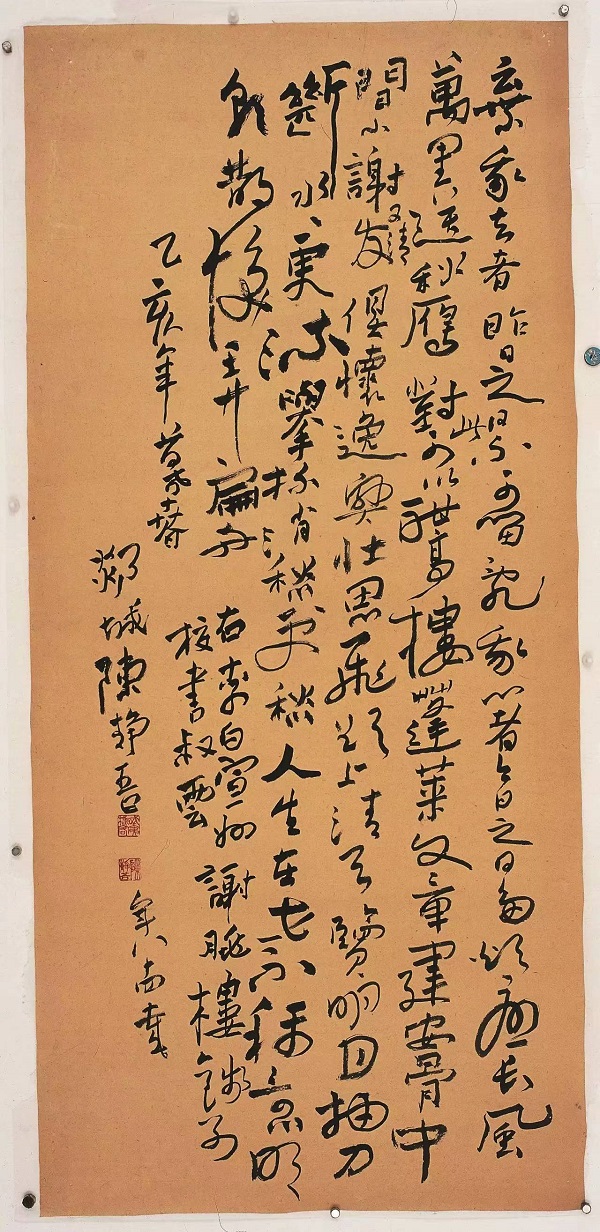 棄我去者昨日之日不可留亂我心者今日之日多煩憂長風
萬里送秋雁對此可以酣高樓蓬萊文章建安骨中
間小謝又清发俱懷逸興壯思飛欲上清天覽明月抽刀
斷水水更流舉杯消愁愁更愁人生在世不稱意明
朝散髮弄扁舟
右李白宣州謝朓樓餞別
校書叔雲
乙亥年暮春
陳靜吾